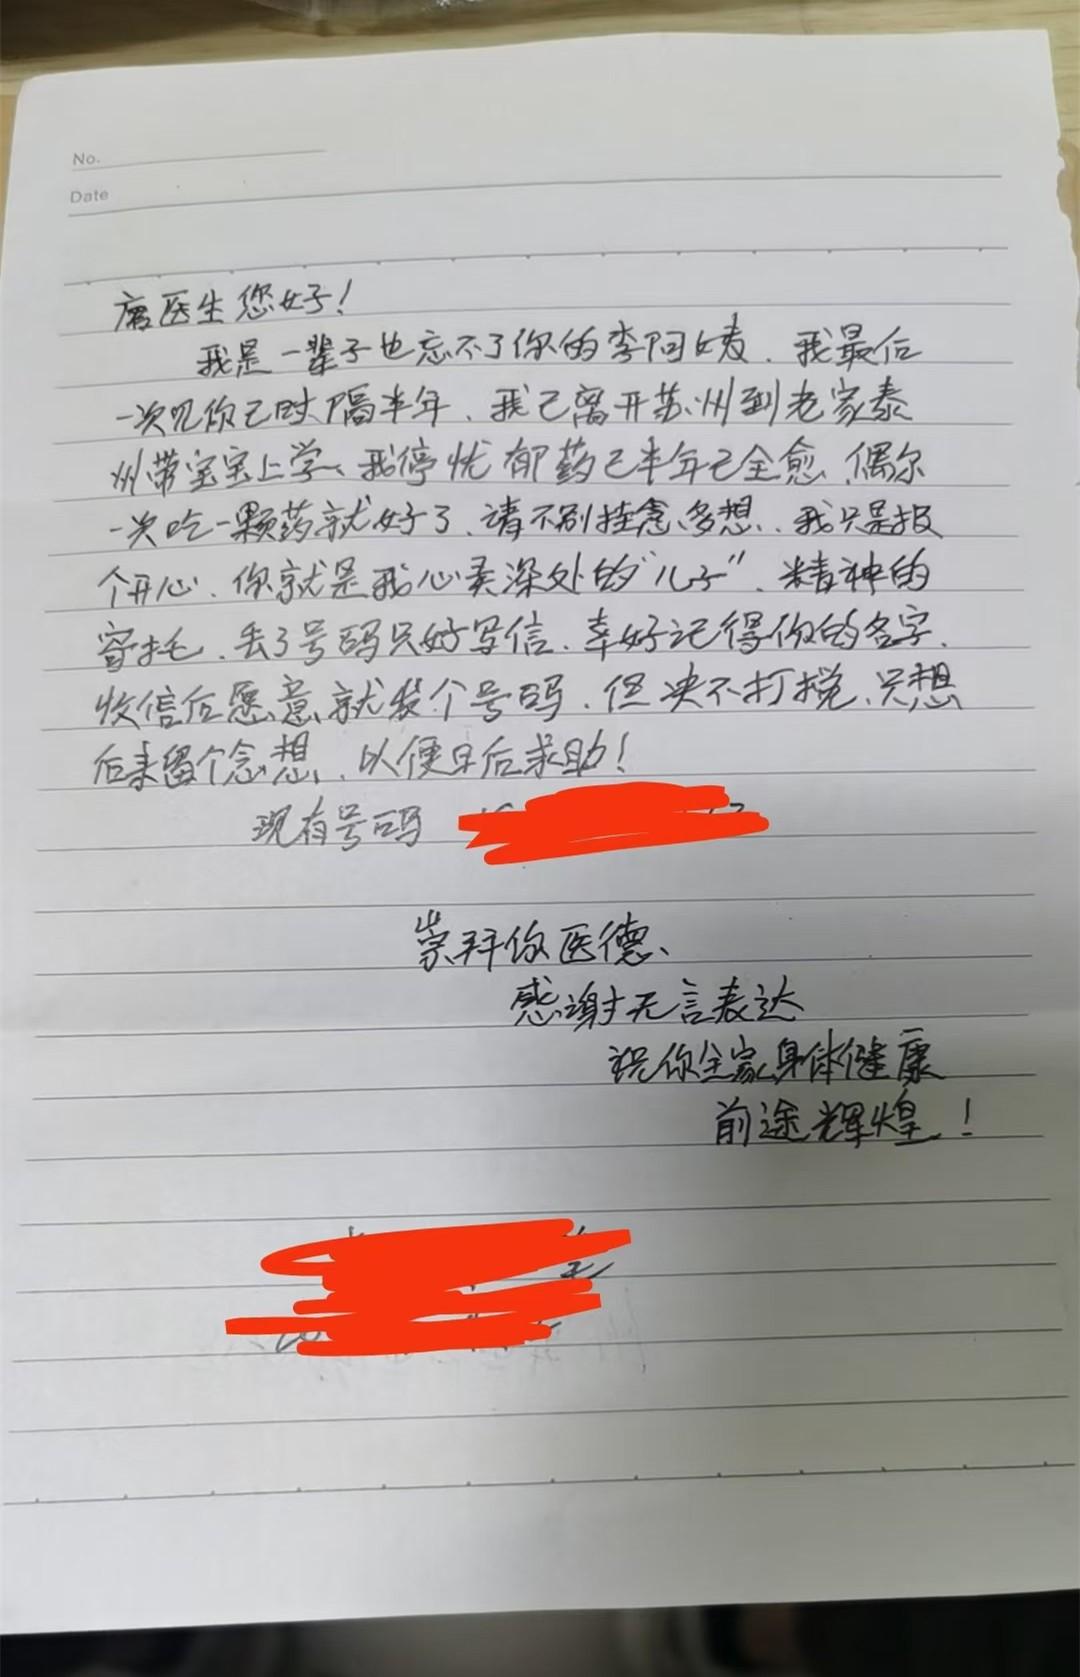 No.
Date
唐医生您好！
我是一辈子也忘不了你的李阿姨、我最后
一次见你已时隔半年、我已离开苏州到老家泰
州带宝宝上学、我停忧郁药已半年已全愈、偶尔
一次吃一颗药就好了、请不别挂念多想、我只是报
个开心、你就是我心里深处的“儿子”、精神的
寄托、丢了号码只好写信、幸好记得你的名字、
收信后愿意就发个号码、但决不打搅、只想
后来留个念想、以便日后求助！
现有号码
崇拜你医德、
感谢无言表达
祝你全家身体健康
前途辉煌！